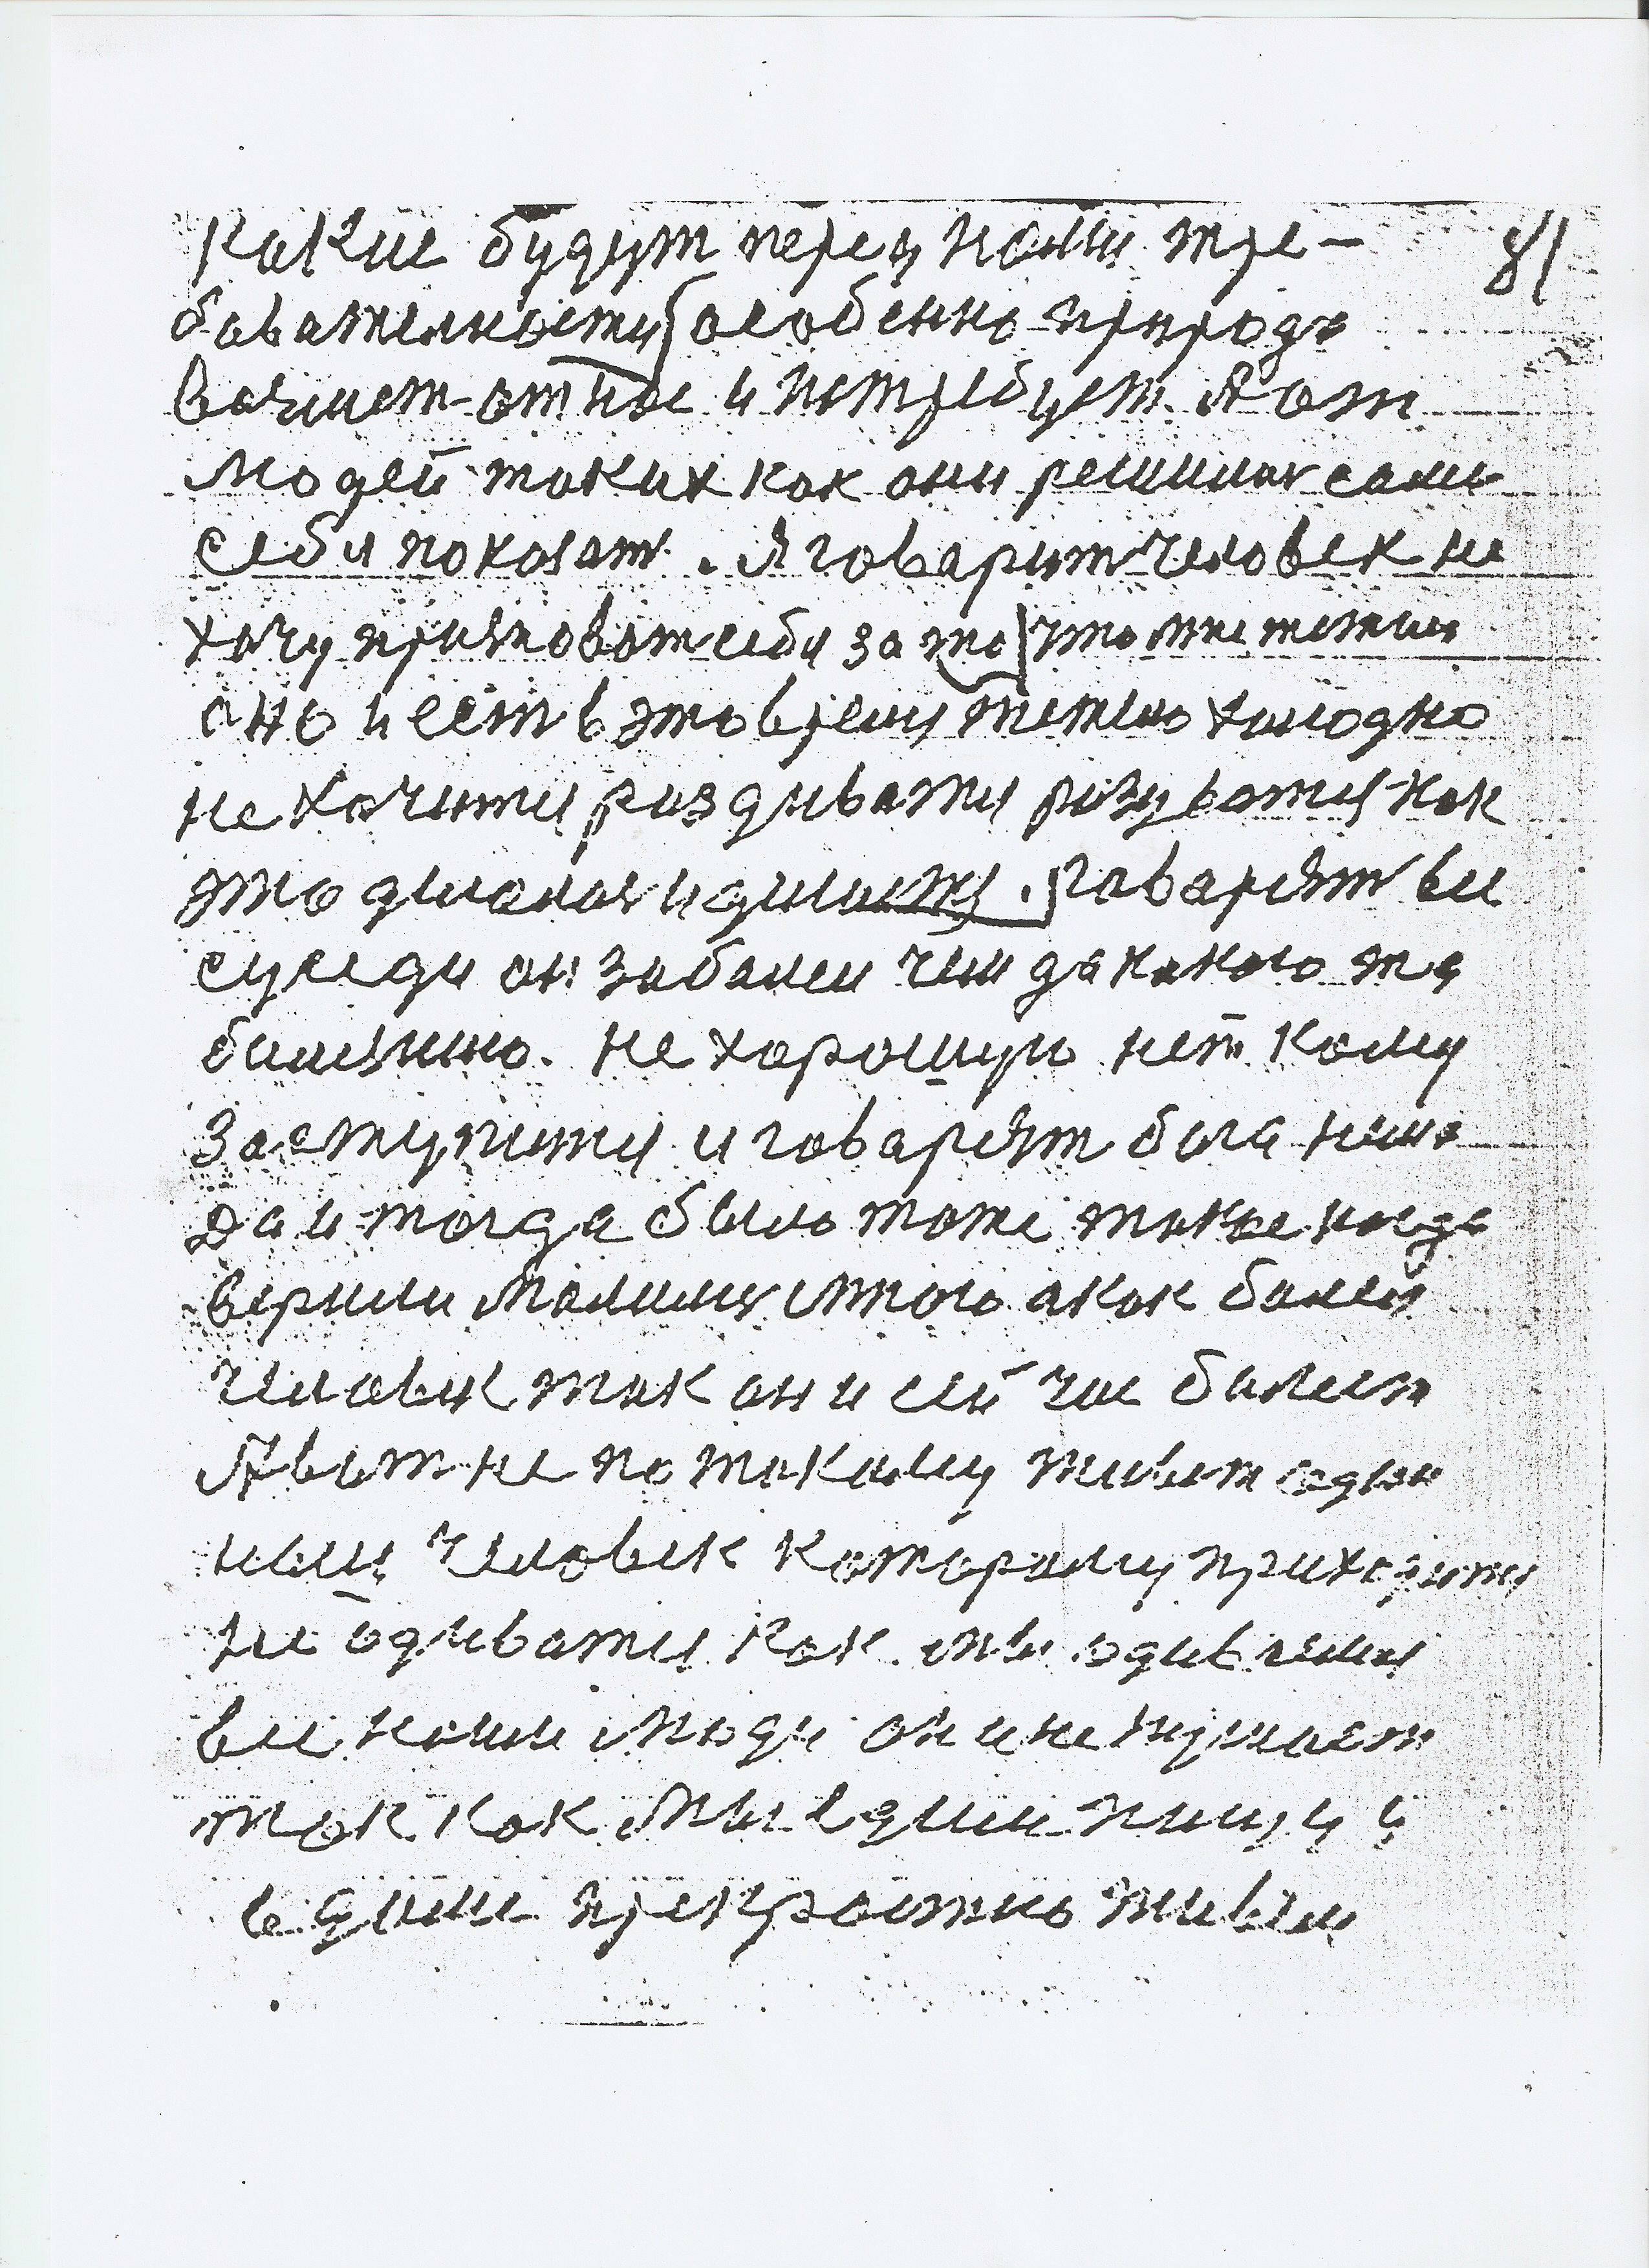 какие будут перед нами тре- 81
бавательности особенно природа
вазмет от нас и потребует. А от
людей таких как они решилас сами
себя показат. Я говарит человек не
хочу признават себя за то что мне тяжило
оно и ест в это время тяжило холодно
не хочится раздиватся разуватся как
это дилалас и дилаится. Говарят вси
суседи он заболел чим да какою та
бользнию. не хорошую нет кому
заступится и говарят бога нима
да и тогда было тоже такое когда
верили молилис много а как болел
чиловек так он и сей час болеет
А вот не по такому живет один
наш чиловек каторому приходится
не одиватся как мы одиваимся
вси наши люди он и не кушает
так как мы едим пищу и
едим прекрастно живем